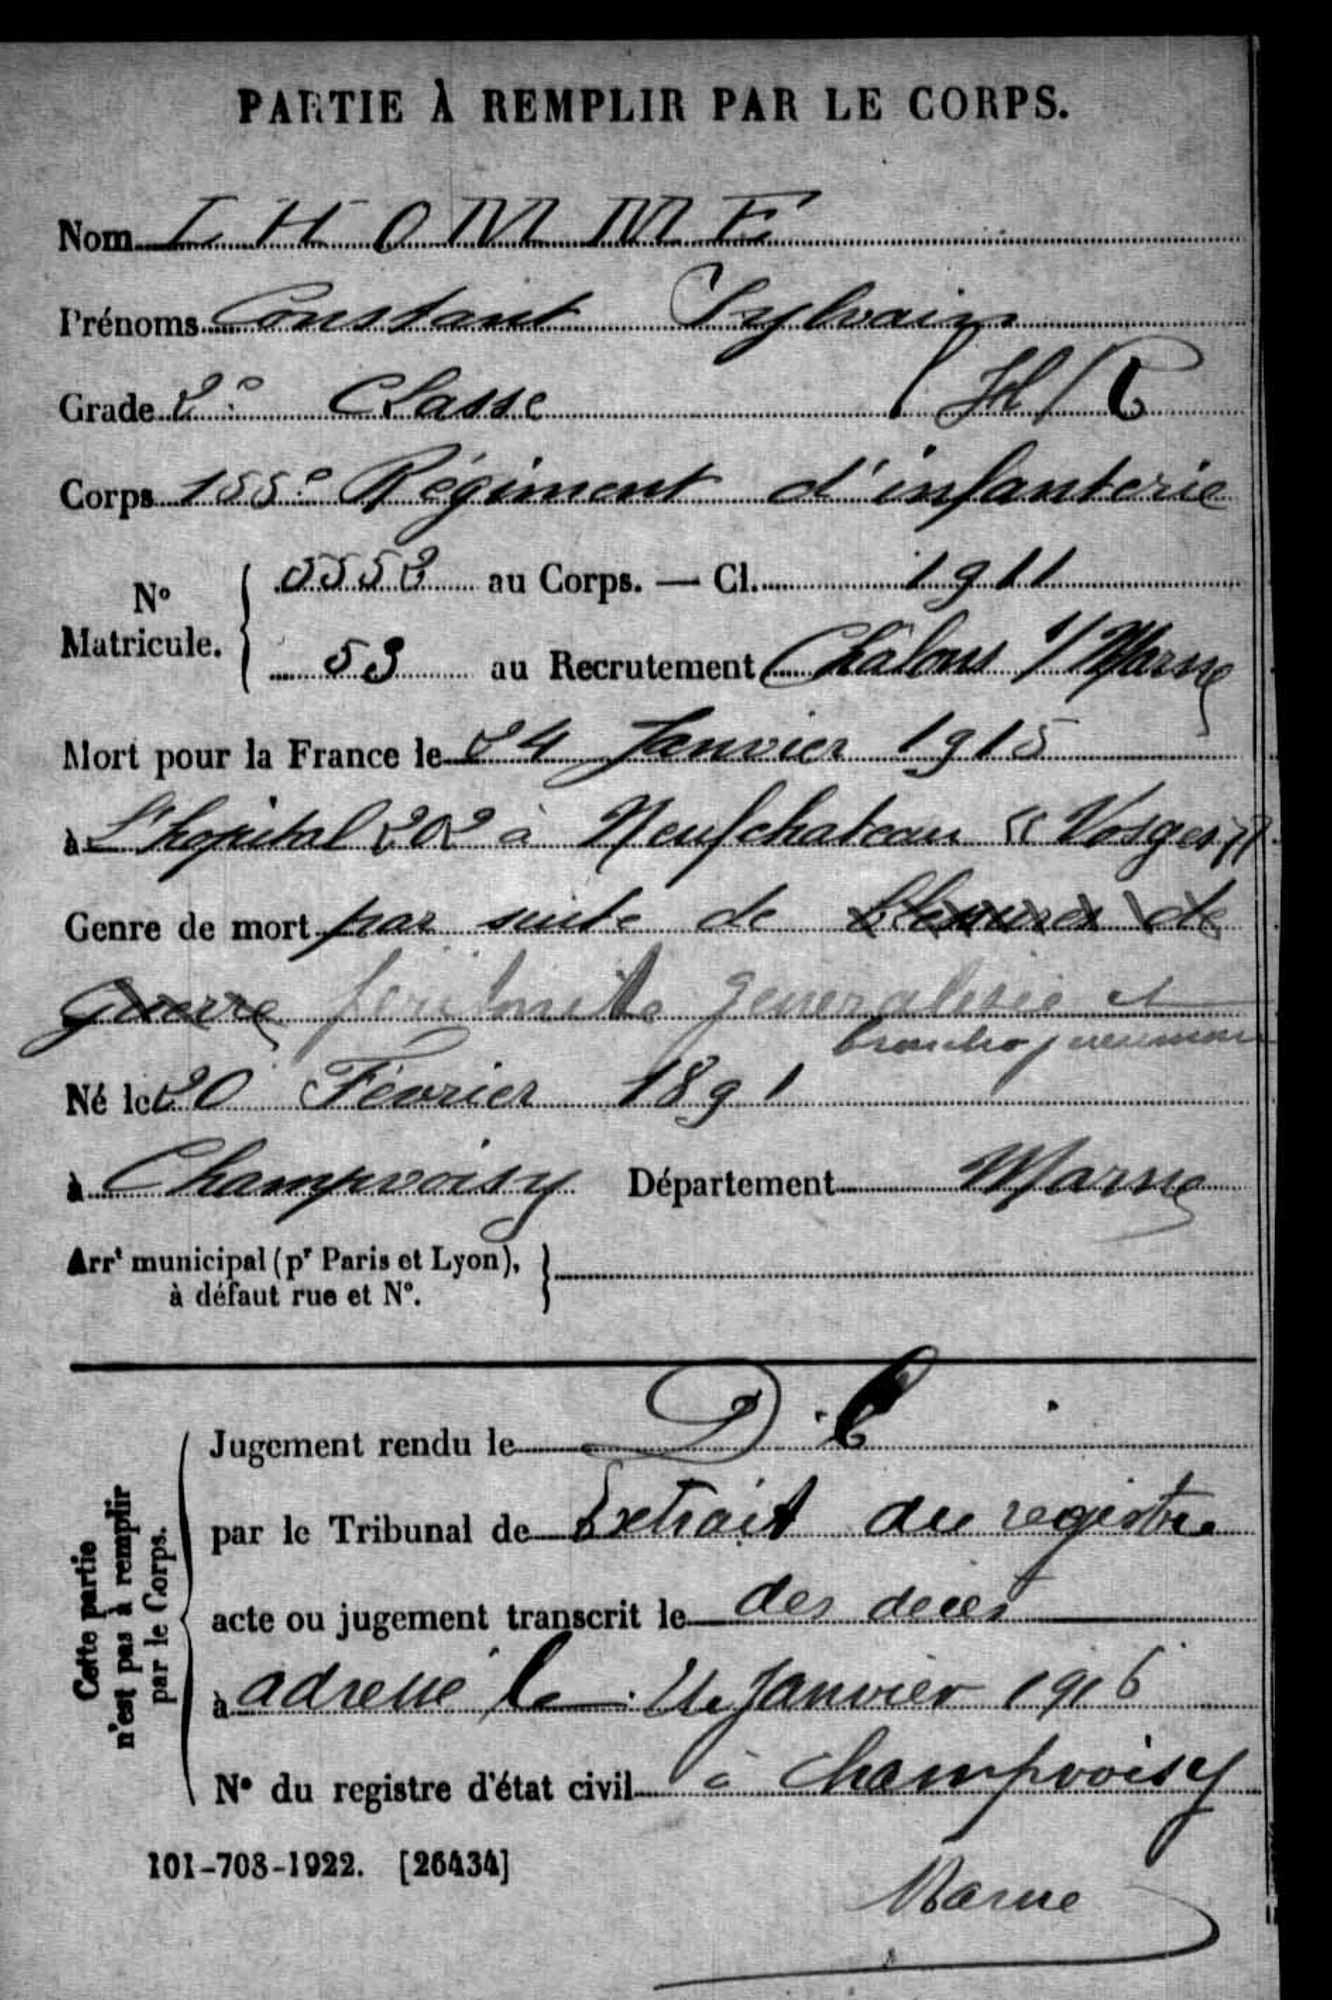 PARTIE À REMPLIR PAR LE CORPS.
Nom LHOMME
Prénoms Constant Sylvain
Grade 2e Classe
Corps 155e Régiment d'infanterie
No Matricule. 5552 au Corps. — Cl. 1911
53 au Recrutement Châlons s/Marne
Mort pour la France le 24 Janvier 1915
à L'hopital 202 à Neufchateau "Vosges"
Genre de mort par suite de blessures de
guerre péritonite généralisée et
broncho pneumonie
Né le 20 Février 1891
à Champvoisy Département Marne
Arrt municipal (pr Paris et Lyon),
à défaut rue et No.
Cette partie
n'est pas à remplir
par le Corps.
Jugement rendu le
par le Tribunal de Extrait du registre
acte ou jugement transcrit le des décès
à adressé le Janvier 1916
No du registre d'état civil à Champvoisy
101-708-1922. [26434]
Marne